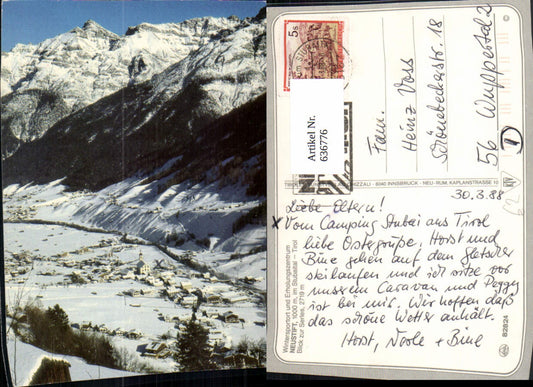 5 S
Artikel Nr.
636776
Fam.
Heinz Voss
Schönebeckerstr. 18
56 Wuppertal 2
D
6020 INNSBRUCK - NEU-RUM, KAPLANSTRASSE 10
30.3.88
Liebe Eltern!
x Vom Camping Stubai aus Tirol
liebe Ostergrüße, Horst und
Bine gehen auf dem Gletscher
skilaufen und ich sitze vor
unserem Caravan und Peggy
ist bei mir. Wir hoffen daß
das schöne Wetter anhält.
Horst, + Bine
Wintersportort und Erholungszentrum
NEUSTIFT, 1000 m, im Stubaital — Tirol
Blick zur Serles, 2719 m
82824